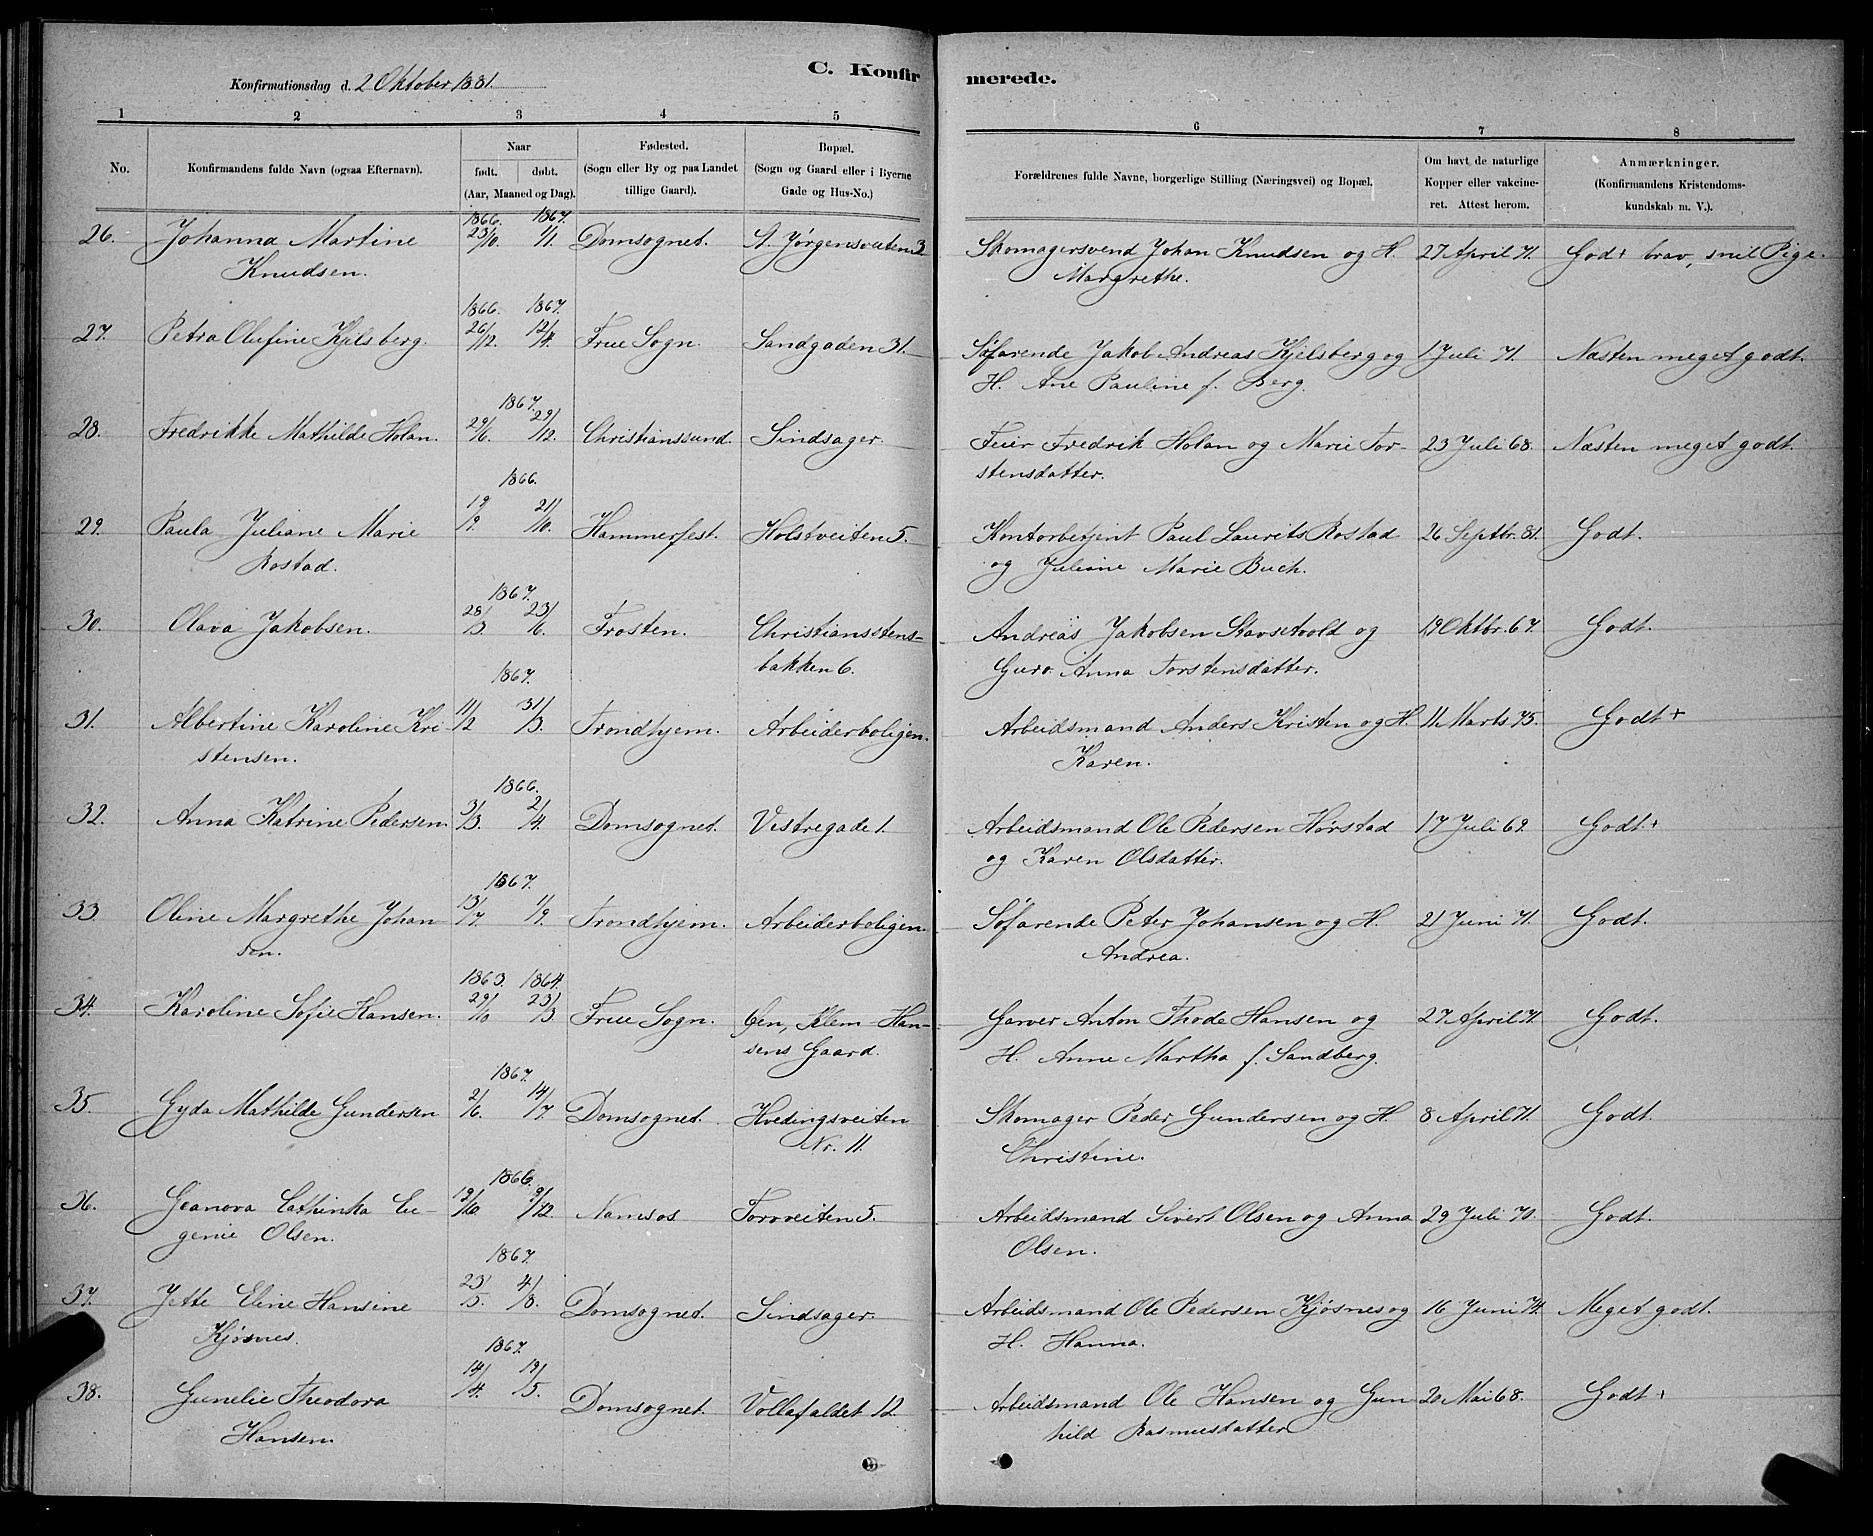 C. Konfirmerede.
Konfirmationsdag d. 2 Oktober 1881.
1 2 3 4 5 6 7 8
No. | Konfirmandens fulde Navn (ogsaa Efternavn). | Naar født. døbt. (Aar, Maaned og Dag). | Fødested. (Sogn eller By og paa Landet tillige Gaard). | Bopæl. (Sogn og Gaard eller i Byerne Gade og Hus-No.) | Forældrenes fulde Navne, borgerlige Stilling (Næringsvei) og Bopæl. | Om havt de naturlige Kopper eller vakcineret. Attest herom. | Anmærkninger. (Konfirmandens Kristendomskundskab m. V.).
1866. 1867.
26. Johanna Martine 23/10. 1/1. Domsognet. St. Jørgensveiten 3 Skomagersvend Johan Knudsen og H. 27 April 71. Godt+ brav, snil Pige.
Knudsen. Margrethe.
1866. 1867.
27. Petra Olufine Kjelsberg. 26/12. 12/4. Frue Sogn. Sandgaden 31. Søfarende Jakob Andreas Kjelsberg og 1 Juli 71. Næsten meget godt.
H. Ane Pauline f. Berg.
1867.
28. Fredrikke Mathilde Holan. 29/6. 29/12. Christianssund. Sindsager. Feier Fredrik Holan og Marie Tor- 23 Juli 68. Næsten meget godt.
stensdatter.
1866.
29. Paula Juliane Marie 19/9. 21/10. Hammerfest. Holstveiten 5. Kontorbetjent Paul Laurits Rostad 26 Septbr. 81. Godt.
Rostad. og Juliane Marie Buch.
1867.
30. Olava Jakobsen. 28/3. 23/6. Frosten. Christianstens- Andreas Jakobsen Stavsetvold og 19 Oktbr. 67. Godt.
bakken 6. Guro Anna Torstensdatter.
1867.
31. Albertine Karoline Kri- 11/2 31/3. Trondhjem. Arbeiderboligen. Arbeidsmand Anders Kristen og H. 11 Marts 75. Godt+
stensen. Karen.
1866.
32. Anna Katrine Pedersen. 3/3. 2/4. Domsognet. Vestregade 1. Arbeidsmand Ole Pedersen Hørstad 17 Juli 69. Godt.+
og Karen Olsdatter.
1867.
33. Oline Margrethe Johan 13/7. 1/9. Trondhjem. Arbeiderboligen. Søfarende Peter Johansen og H. 21 Juni 71. Godt.
sen. Andrea.
1863. 1864.
34. Karoline Sofie Hansen. 29/10 23/3. Frue Sogn. Øen, Klem-Han- Garver Anton Thode Hansen og 27 April 71. Godt.
sens Gaard. H. Anne Martha f. Sandberg.
1867.
35. Gyda Mathilde Gundersen 2/6. 14/7. Domsognet. Hvedingsveiten Skomager Peder Gundersen og H. 8 April 71. Godt.
Nr. 11. Christine.
1866.
36. Geanova Cathinka Eu- 19/10. 9/12. Namsos Torvveiten 5. Arbeidsmand Sivert Olsen og Anna 29 Juli 70. Godt.
genie Olsen. Olsen.
1867.
37. Jette Eline Hansine 23/5. 4/8. Domsognet. Sindsager. Arbeidsmand Ole Pedersen Kjøsnes og 16 Juni 74. Meget godt.
Kjøsnes. H. Hanna.
1867.
38. Gunelie Theodora 14/4. 19/5. Domsognet. Vollafaldet 12. Arbeidsmand Ole Hansen og Gun 20 Mai 68. Godt+
Hansen. hild Rasmusdatter